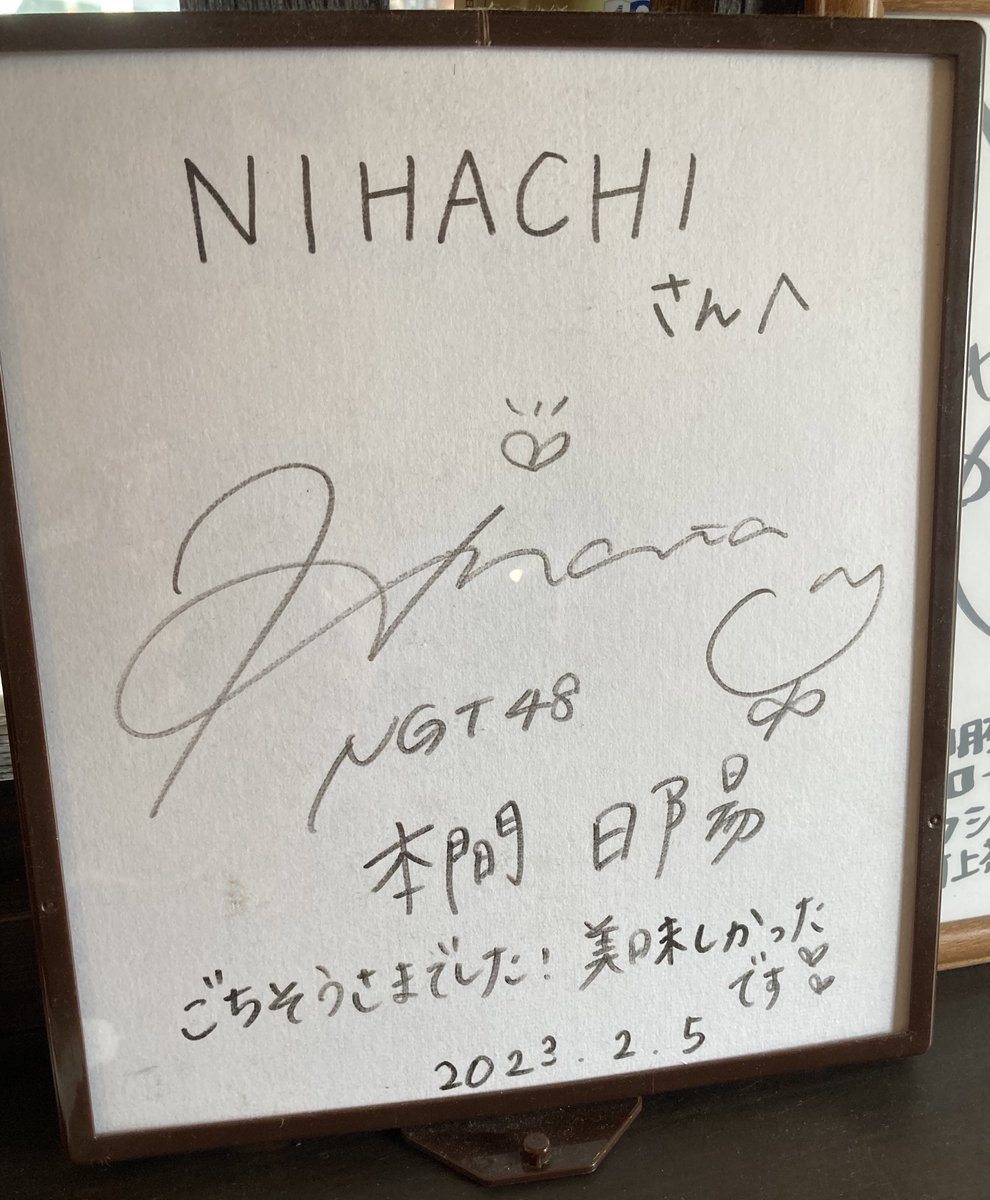 NIHACHI
さんへ
Hinata
NGT48
本間 日陽
ごちそうさまでした! 美味しかった
です♡♡
2023.2.5